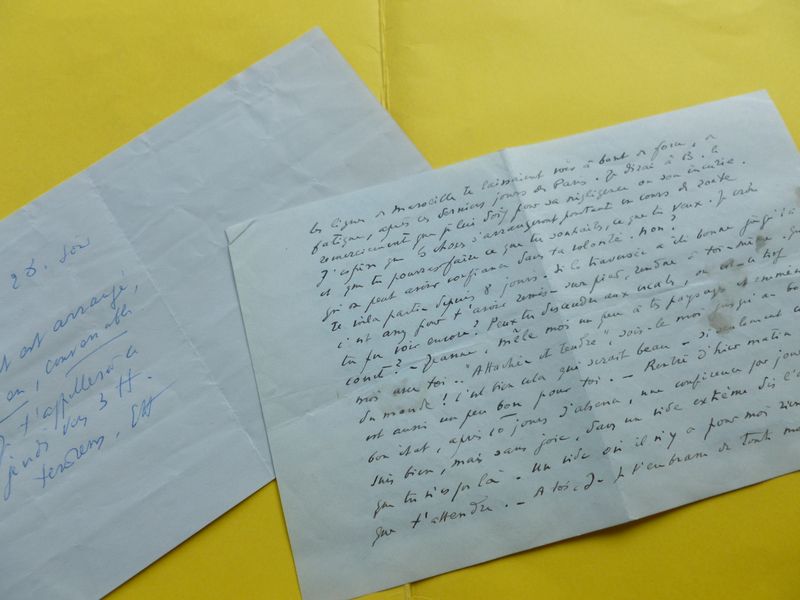 28. Soir
est arrangé,
convenable
t'appellerai le
jeudi vers 3 H.
de Marseille te laissaient à bout de force, de
fatigue, après ces derniers jours de Paris. Je dirai à B. le
remerciement que je lui dois pour sa négligence ou son incurie.
J'espère que les choses s'arrangeront pourtant en cours de route
et que tu pourras faire ce que tu souhaits, ce que tu veux. Je crois
qu'on peut avoir confiance dans ta volonté. Non?
Te voilà partie depuis 8 jours - si la traversée a été bonne jusqu'à
c'est assez pour t'avoir remise sur pied, rendue à toi-même. Que
tu fus voir encore? Peux tu descendre aux escales, ou est-ce trop
court? - Jeanne, mêle moi un peu à tes paysages et emmène
moi avec toi.. "Attachée et tendre", sois-le moi jusqu'au bout
du monde! C'est bien cela qui serait beau - si seulement c'
est aussi un peu bon pour toi. - Rentré d'hier matin
bon état, après 10 jours d'absence, une conférence par jour
suis bien, mais sans joie, dans un vide extrême dès l'
que tu n'es pas là - Un vide où il n'y a pour moi rien
que t'attendre. - A toi, Je t'embrasse de toute mon